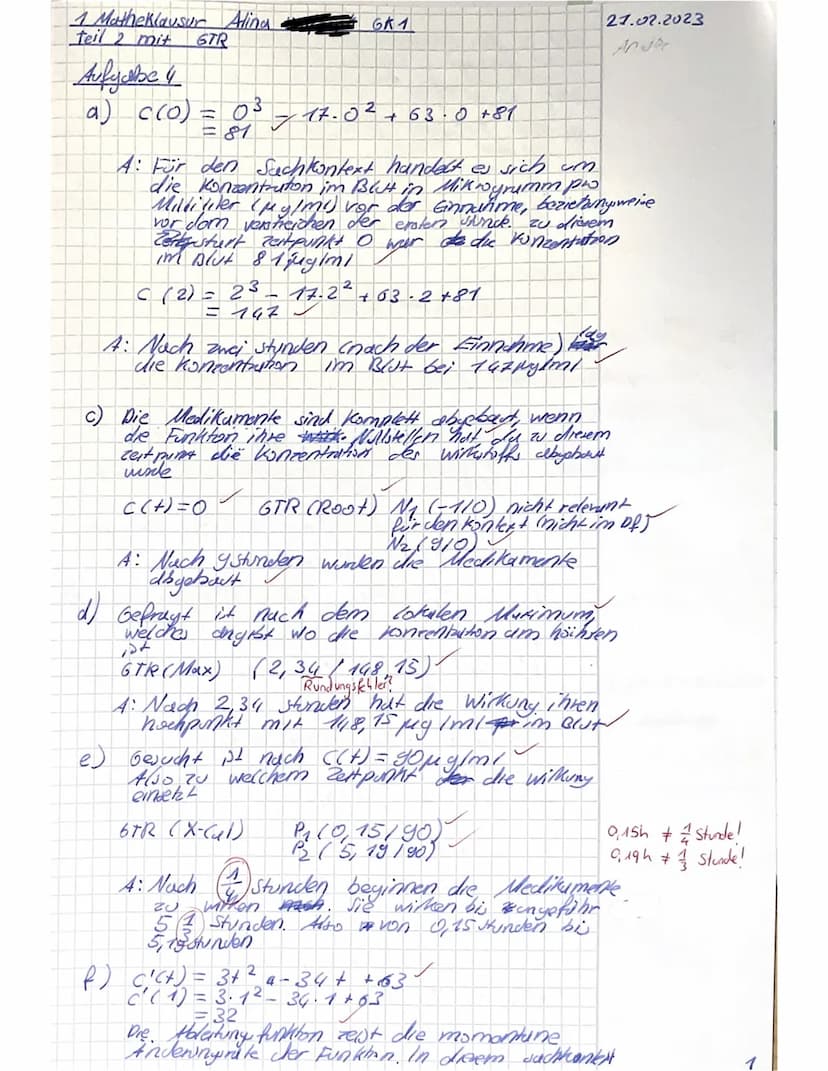 1 Matheklausur Alina GK1
27.02.2023
Teil 2 mit GTR
Aufgabe 4
a) C(0) = 0³ - 17·0² + 63·0 +81
= 81
A: Für den Sachkontext handelt es sich um
die Konzentraton im Blut in Mikrogramm pro
Milliliter (µg/ml) vor der Einnahme, beziehungsweise
vor dem verstreichen der ersten Stunde. zu diesem
Zeitpunkt 0 war die Konzentration
im Blut 81 µg/ml
C (2) = 2³ - 17·2² + 63·2 +81
= 147
A: Nach zwei Stunden (nach der Einnahme) lag
die Konzentration im Blut bei 147µg/ml
c) Die Medikamente sind komplett abgebaut, wenn
die Funktion ihre Nullstellen hat, da zu diesem
Zeitpunkt die Konzentration des Wirkstoffs abgebaut
wurde
C(t)=0 GTR (Root) N₁ (-1/0) nicht relevant
für den Kontext (nicht im Df)
N₂ (9/0)
A: Nach 9 Stunden wurden die Medikamente
abgebaut
d) Gefragt ist nach dem lokalen Maximum,
welches angibt wo die Konzentration am höchsten
ist
GTR (Max) (2,34 / 148,15)
Rundungsfehler?
A: Nach 2,34 Stunden hat die Wirkung ihren
hochpunkt mit 148,15 µg/ml im Blut
e) Gesucht ist nach C(t) = 90µg/ml
Also zu welchem Zeitpunkt die Wirkung
einsetzt
GTR (X-Cal) P₁ (0,15/90)
P₂ (5,19/90)
0,15h ≠ 1/4 Stunde!
0,19h ≠ 1/3 Stunde!
A: Nach 1/4 Stunden beginnen die Medikamente
zu wirken. Sie wirken bis ungefähr
5 1/3 Stunden. Also von 0,15 Stunden bis
5,19 Stunden
f) C'(t) = 3t² - 34t + 63
C'(1) = 3·1² - 34·1 + 63
= 32
Die Ableitungsfunktion zeigt die momentane
Änderungsrate der Funktion. In diesem Sachkontext
1